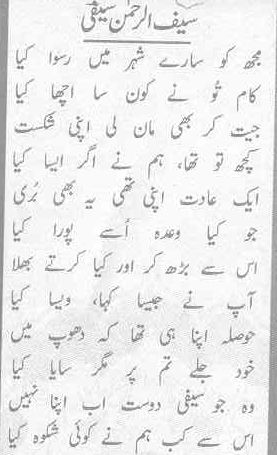 سیف الرحمن سیفی
مجھ کو سارے شہر میں رسوا کیا
کام تُو نے کون سا اچھا کیا
جیت کر بھی مان لی اپنی شکست
کچھ تو تھا، ہم نے اگر ایسا کیا
ایک عادت اپنی تھی یہ بھی بُری
جو کیا وعدہ اُسے پورا کیا
اس سے بڑھ کر اور کیا کرتے بھلا
آپ نے جیسا کہا، ویسا کیا
حوصلہ اپنا ہی تھا کہ دھوپ میں
خود جلے تم پر مگر سایا کیا
وہ جو سیفی دوست اب اپنا نہیں
اس سے کب ہم نے کوئی شکوہ کیا